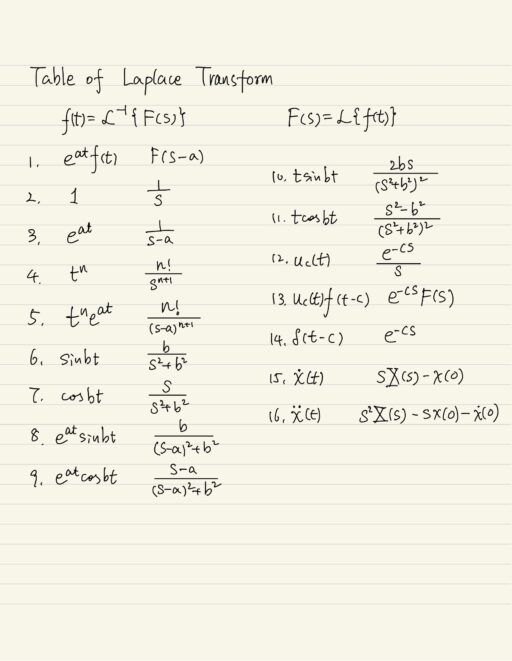 Table of Laplace Transform
f(t) = ℒ⁻¹{F(s)}
F(s) = ℒ{f(t)}
1. e^{at}f(t) F(s-a)
2. 1 1/s
3. e^{at} 1/(s-a)
4. tⁿ n!/s^{n+1}
5. tⁿe^{at} n!/(s-a)^{n+1}
6. sinbt b/(s²+b²)
7. cosbt s/(s²+b²)
8. e^{at}sinbt b/((s-a)²+b²)
9. e^{at}cosbt (s-a)/((s-a)²+b²)
10. tsinbt 2bs/(s²+b²)²
11. tcosbt (s²-b²)/(s²+b²)²
12. u_c(t) e^{-cs}/s
13. u_c(t)f(t-c) e^{-cs}F(s)
14. δ(t-c) e^{-cs}
15. ẋ(t) sX(s) - x(0)
16. ẍ(t) s²X(s) - sx(0) - ẋ(0)